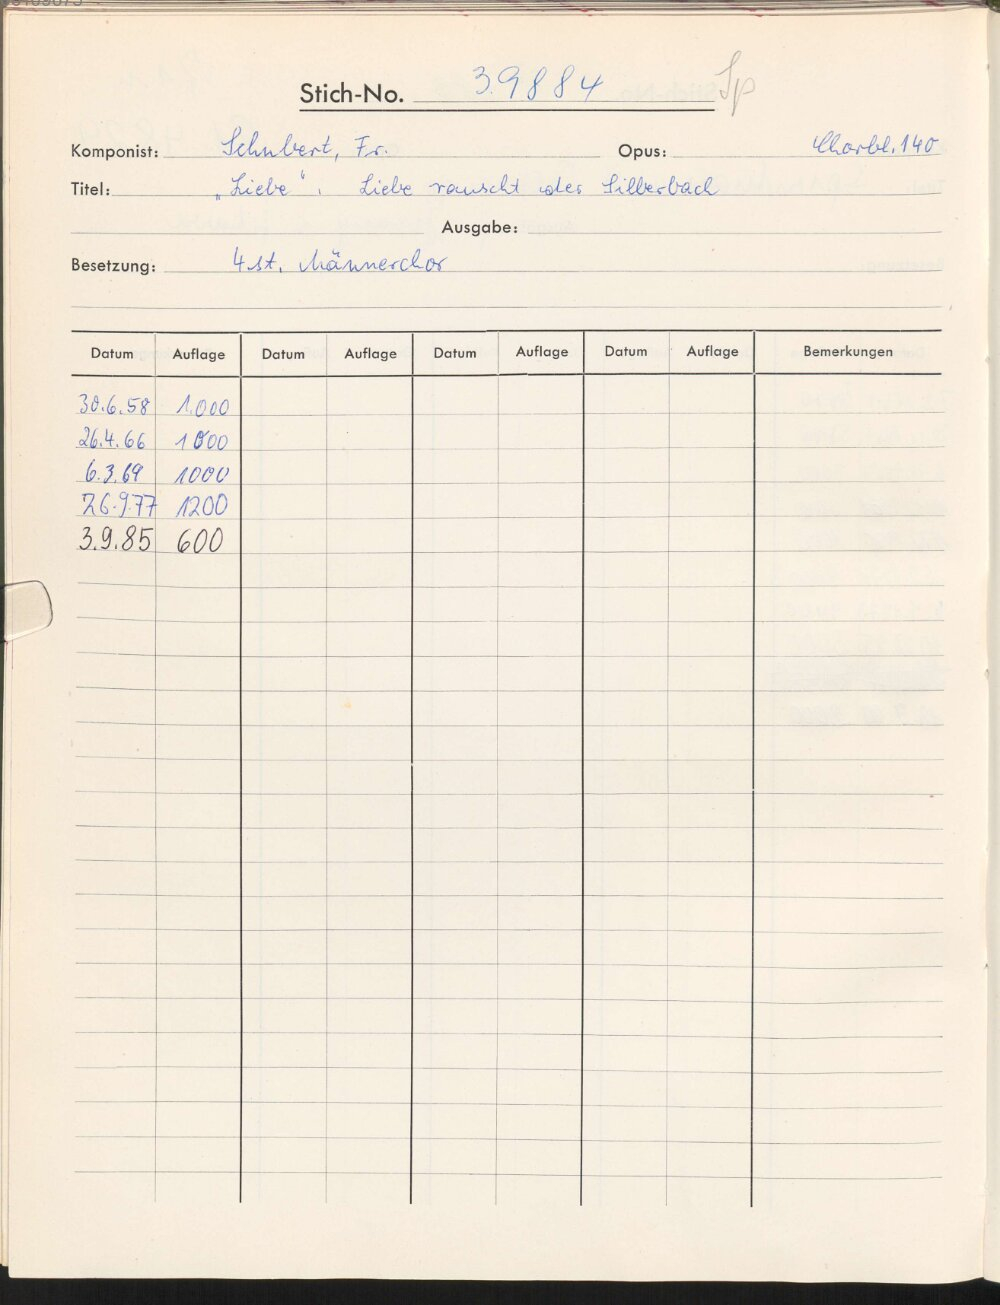 Stich-No. 39884 Sp
Komponist: Schubert, Fr. Opus: Chorbl. 140
Titel: „Liebe". Liebe rauscht der Silberbach
Ausgabe:
Besetzung: 4 st. Männerchor
Datum Auflage Datum Auflage Datum Auflage Datum Auflage Bemerkungen
30.6.58 1.000
26.4.66 1000
6.3.69 1000
26.9.77 1200
3.9.85 600